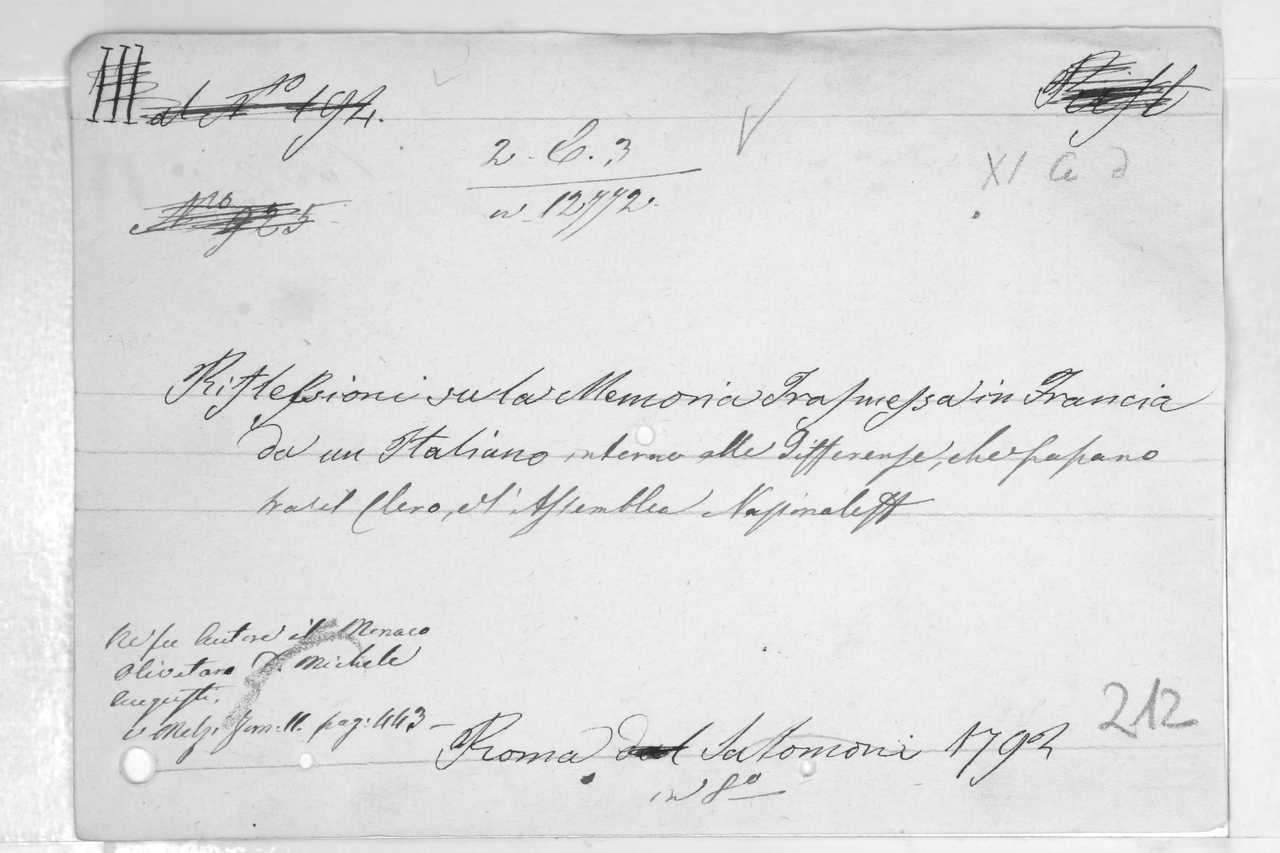 al Nro 194.
2. C. 3
n. 12772.
XI C d
Nro 925
Riflessioni sula Memoria Trasmessa in Francia
da un Italiano intorno alle Differenze, che passano
tra il Clero, e l'Assemblea Nazionale
Ne fu Autore il Monaco
Olivetano D. Michele
Augusti.
v. Melzi Tom: II. pag: 443
Roma dal Salomoni 1792
in 8o
212